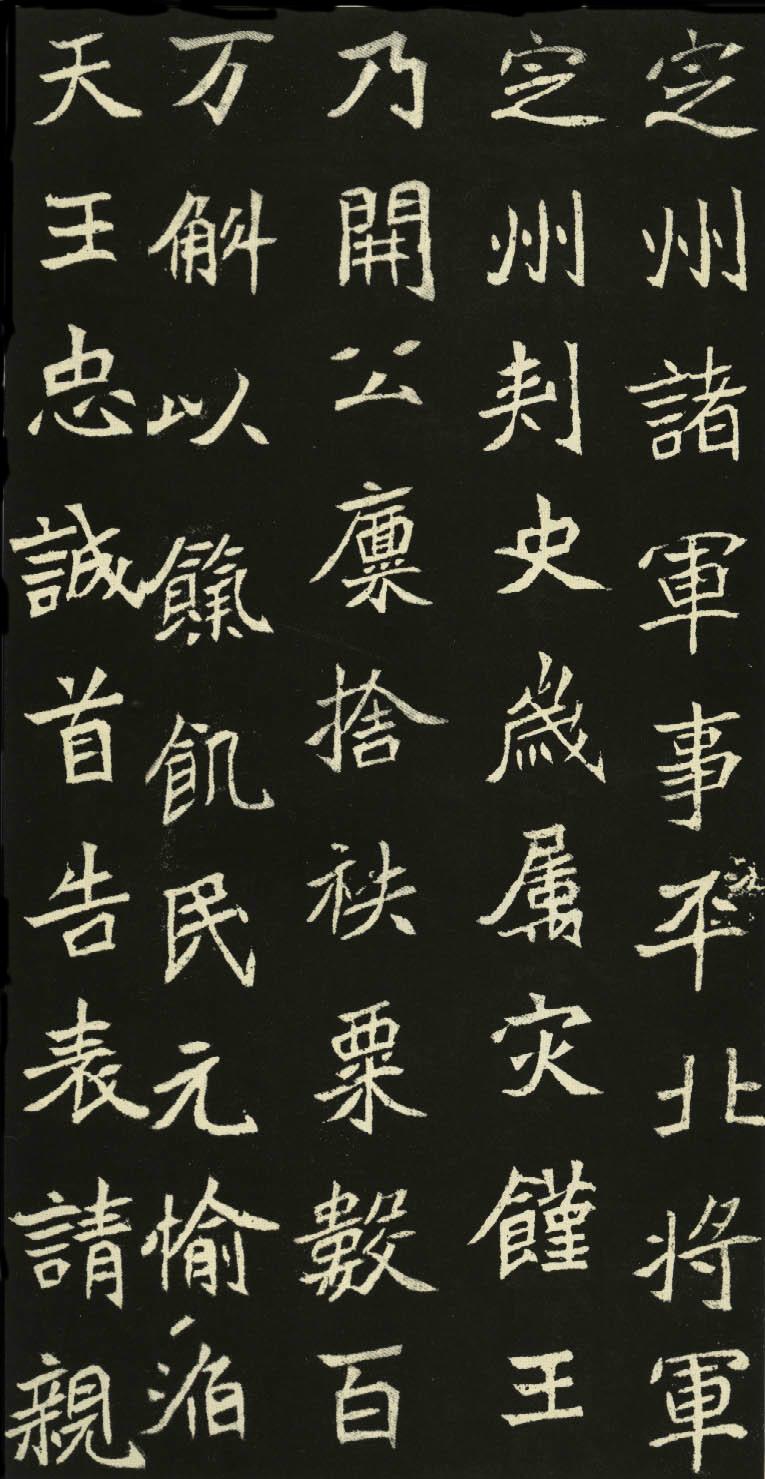 定州諸軍事平北將軍
定州刾史歲属灾饉王
乃開公廩捨袟粟數百
万斛以餼飢民元愉
天王忠誠首告表請親